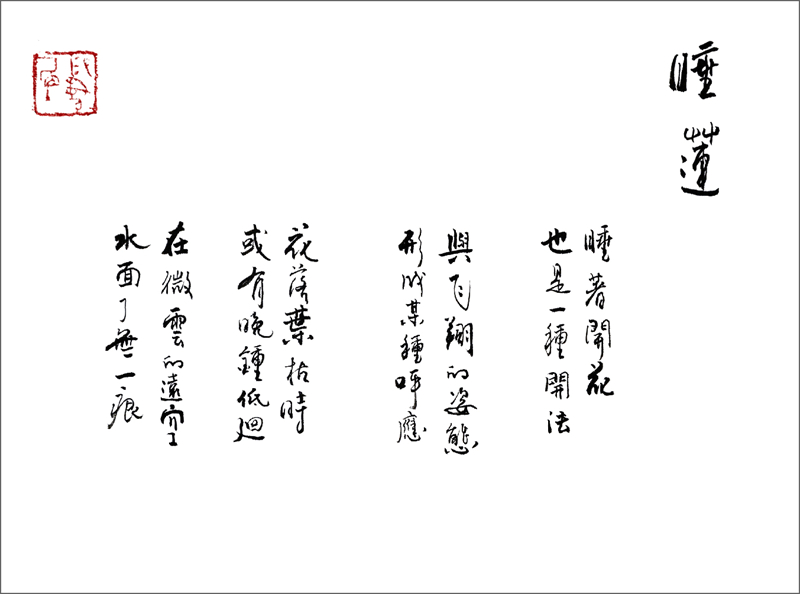 睡蓮
睡著開花
也是一種開法
與飞翔的姿態
形成某種呼應
花落葉枯時
或有晚鐘低迴
在微雲的遠空
水面了無一痕